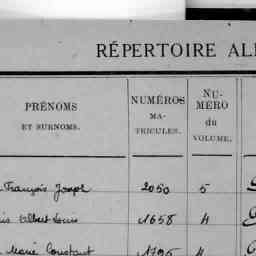 RÉPERTOIRE AL
PRÉNOMS
ET SURNOMS.
NUMÉROS
MA-
TRICULES.
NU-
MÉRO
du
VOLUME.
François Joseph 2050 5
Albert Louis 1658 4
Marie Constant 1795 4